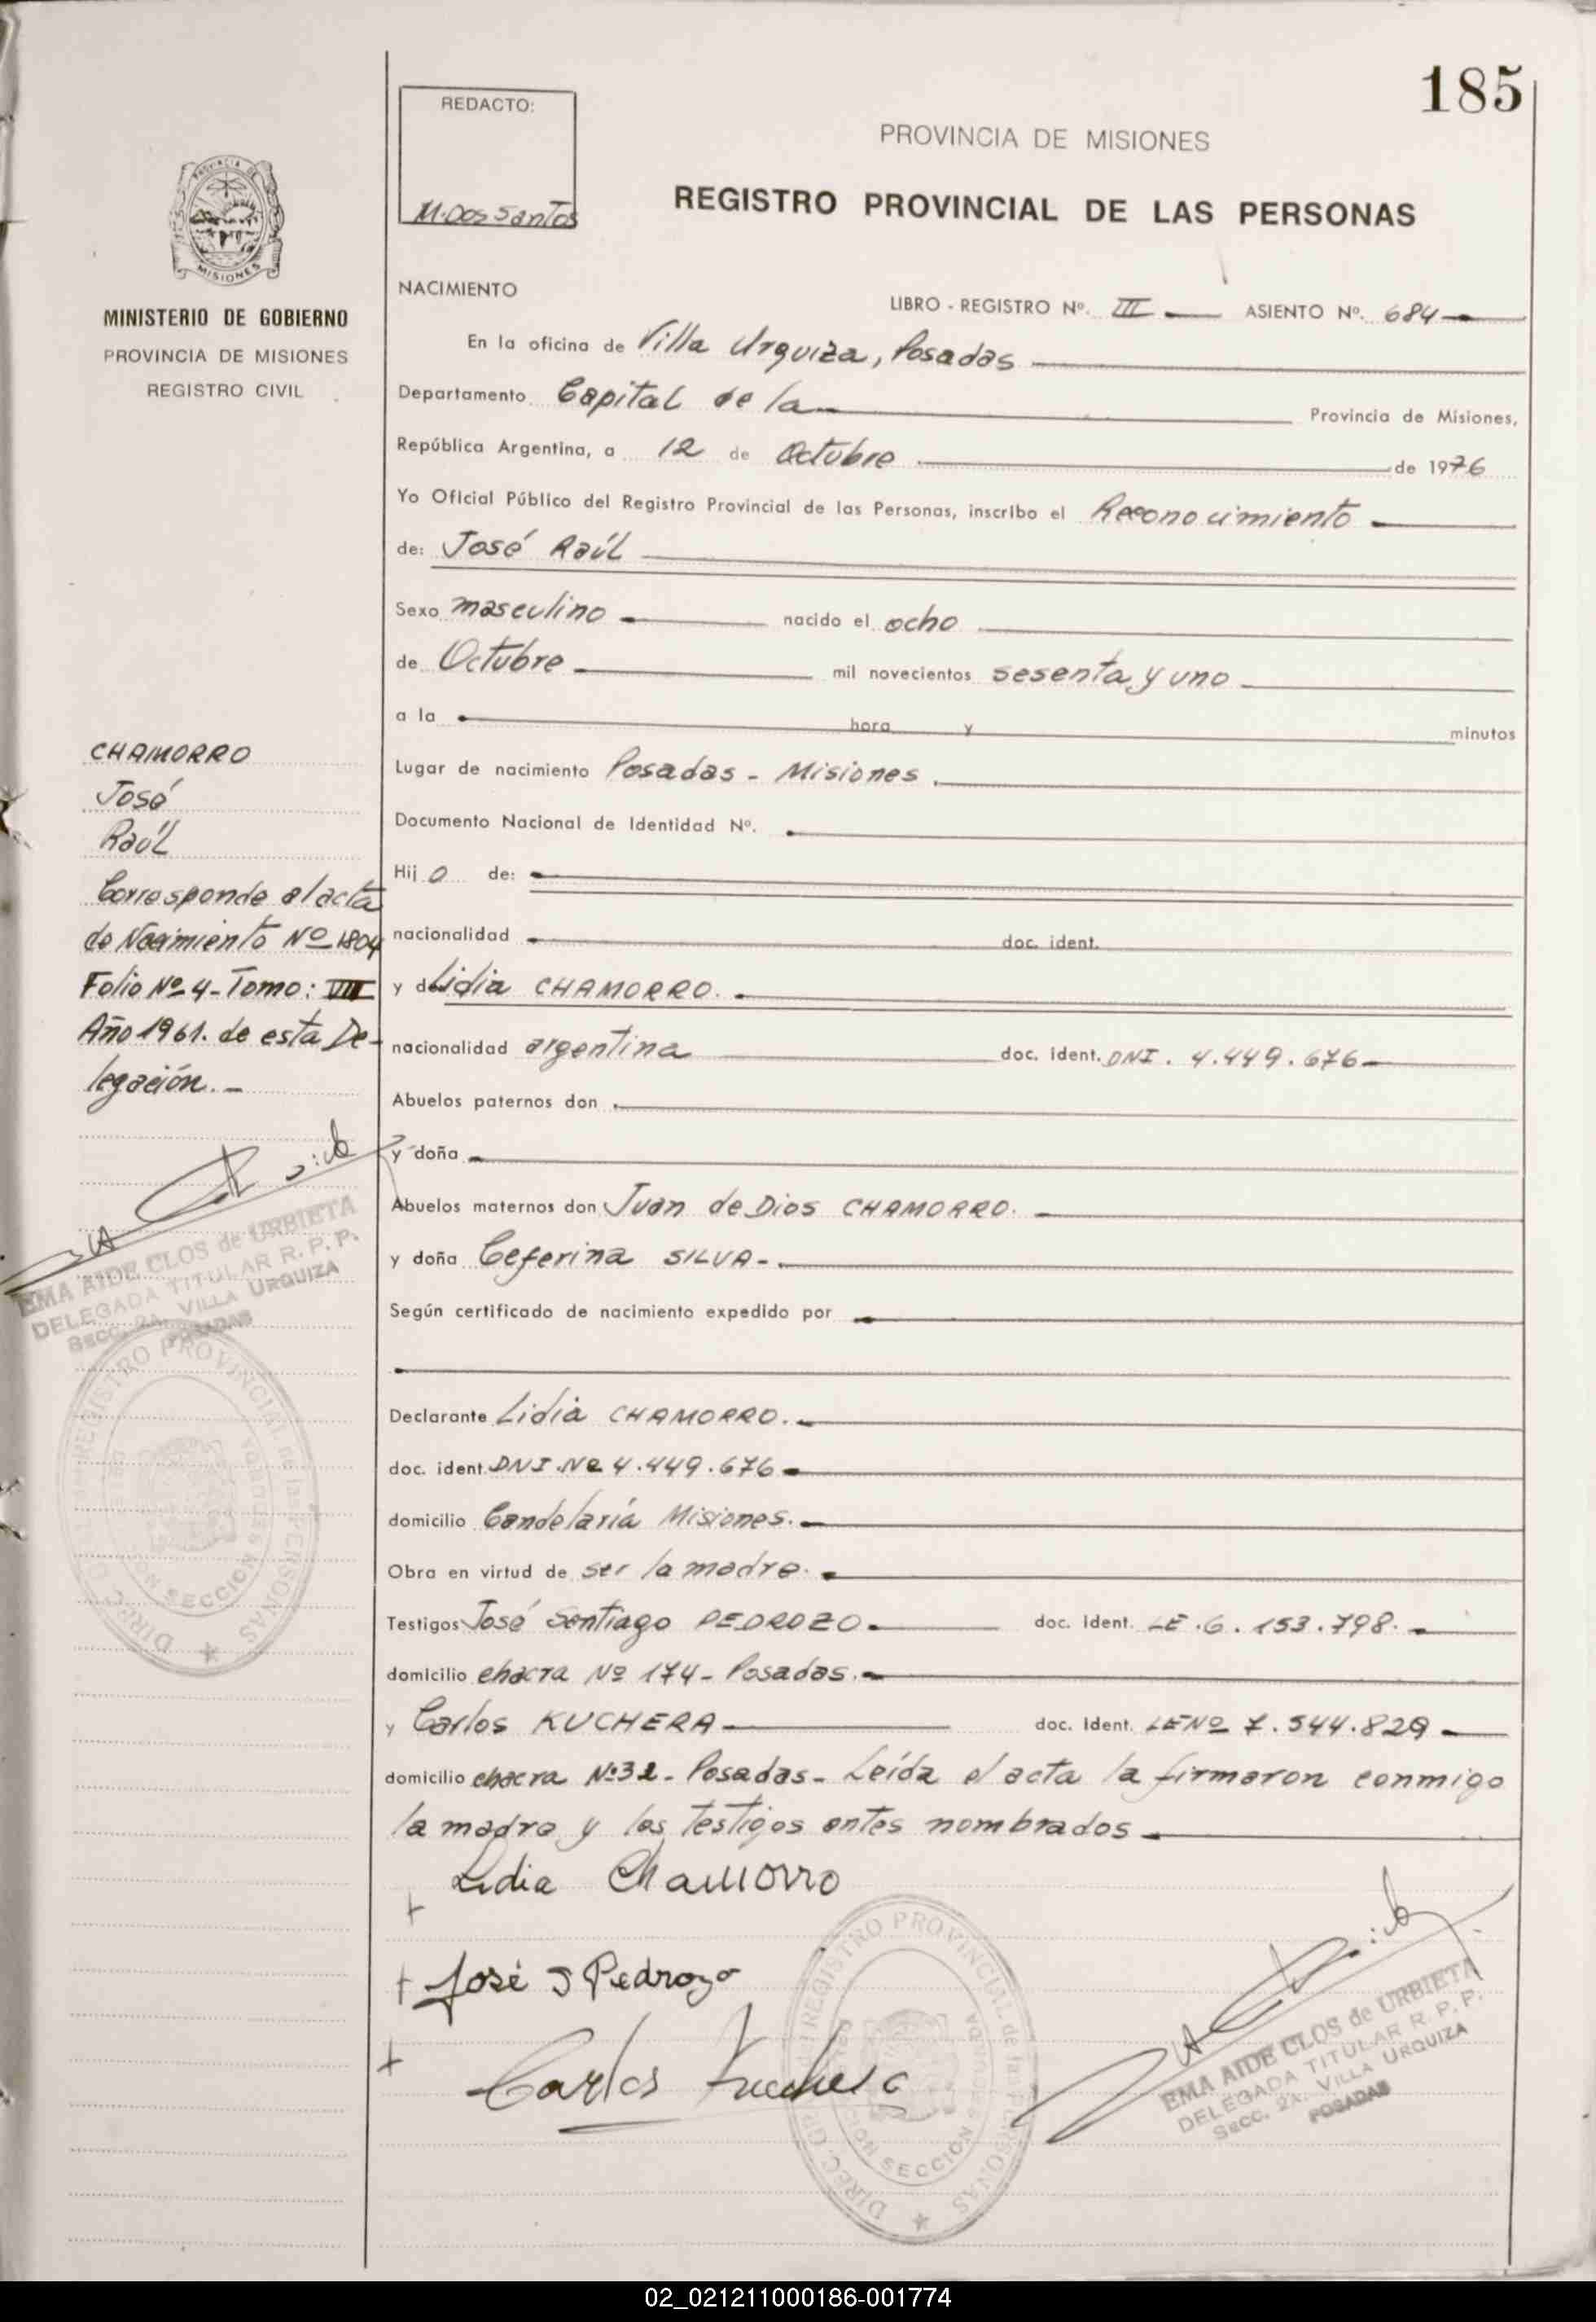 185
REDACTO:
M. Dos Santos
PROVINCIA DE MISIONES
REGISTRO PROVINCIAL DE LAS PERSONAS
PROVINCIA DE
MISIONES
MINISTERIO DE GOBIERNO
PROVINCIA DE MISIONES
REGISTRO CIVIL
CHAMORRO
José
Raúl
Corresponde al acta
de Nacimiento Nº 1804
Folio Nº 4 - Tomo: VIII
Año 1961. de esta De-
legación. -
EMA AIDE CLOS de URBIETA
DELEGADA TITULAR R. P. P.
SECC. 2A. VILLA URQUIZA
POSADAS
DIREC. GRAL. DEL REGISTRO PROVINCIAL de las PERSONAS
SECCION
NACIMIENTO
LIBRO - REGISTRO Nº. III ASIENTO Nº. 684
En la oficina de Villa Urquiza, Posadas
Departamento Capital de la Provincia de Misiones,
República Argentina, a 12 de Octubre de 1976
Yo Oficial Público del Registro Provincial de las Personas, inscribo el Reconocimiento
de: José Raúl
Sexo masculino nacido el ocho
de Octubre mil novecientos sesenta y uno
a la hora y minutos
Lugar de nacimiento Posadas - Misiones
Documento Nacional de Identidad Nº.
Hij o de:
nacionalidad doc. ident.
y de Lidia CHAMORRO.
nacionalidad argentina doc. ident. DNI. 4.449.676
Abuelos paternos don
y doña
Abuelos maternos don Juan de Dios CHAMORRO.
y doña Ceferina SILVA -
Según certificado de nacimiento expedido por
Declarante Lidia CHAMORRO.
doc. ident. DNI. Nº 4.449.676
domicilio Candelaria Misiones.
Obra en virtud de ser la madre.
Testigos José Santiago PEDROZO doc. ident. LE. 6.153.798.
domicilio chacra Nº 174 - Posadas.
y Carlos KUCHERA doc. ident. LE Nº 7.544.829
domicilio chacra Nº 32 - Posadas - Leída el acta la firmaron conmigo
la madre y los testigos antes nombrados
Lidia Chamorro
José S Pedrozo
Carlos Kuchera
DIREC. GRAL. DEL REGISTRO PROVINCIAL de las PERSONAS
SECCION
EMA AIDE CLOS de URBIETA
DELEGADA TITULAR R. P. P.
SECC. 2A. VILLA URQUIZA
POSADAS
02_021211000186-001774